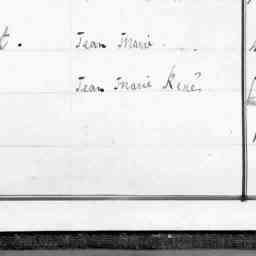 t. Jean Marie
Jean Marie René